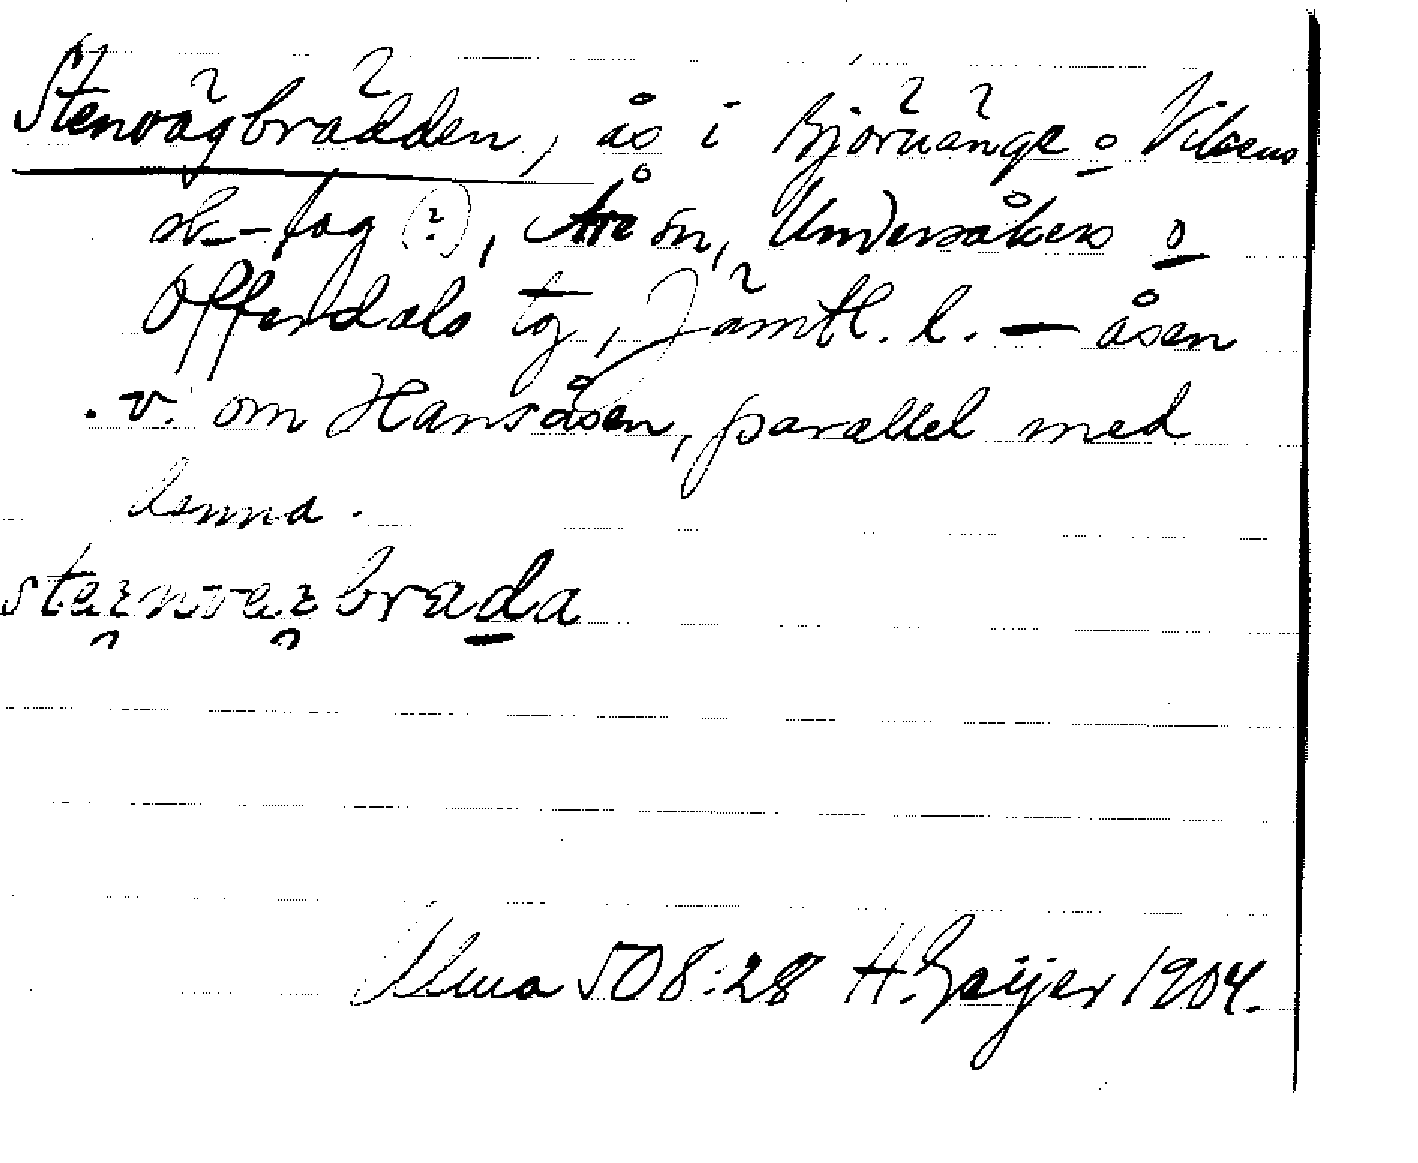 Stenvägbrädden, ås i Björnänge o Vikens
sk-lag (?), Åre sn, Undersåkers o
Offerdals tg, Jämtl. l. — åsen
v. om Hansåsen, parallel med
denna.
508:28 H. Geijer 1904.